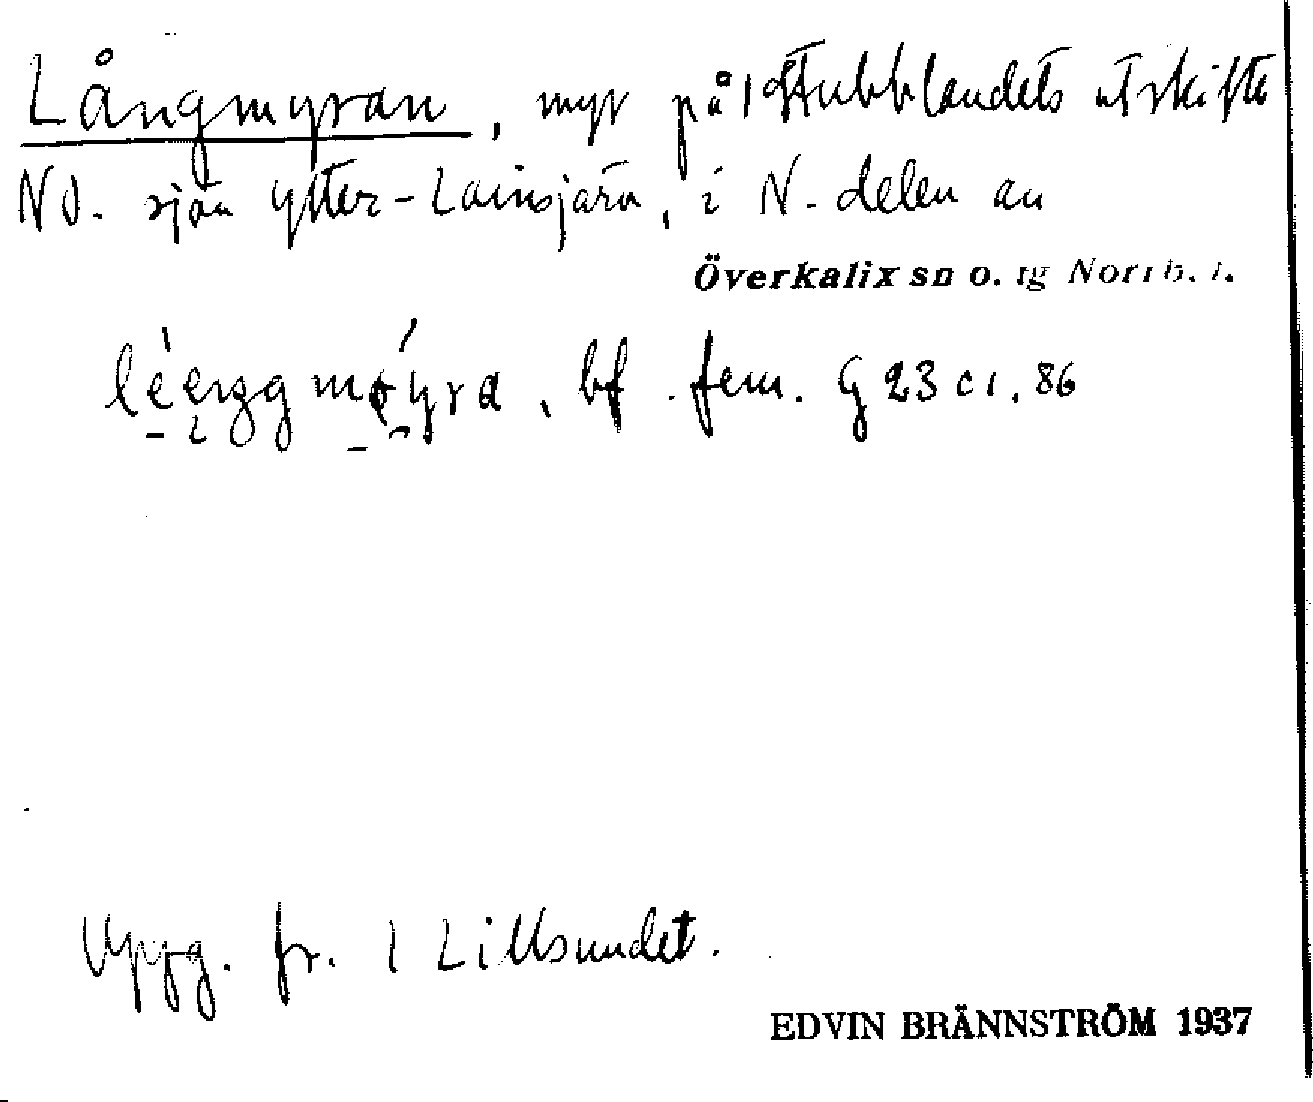 Långmyran, myr på 1 Stubblandets utskifte
NO. sjön Ytter-Lainsjärv, i N. delen av
Överkalix sn o. tg Norrb. l.
léeŋgmøyra, bf. fem. G 23 c 1. 86
Uppg. fr. 1 Lillsundet.
EDVIN BRÄNNSTRÖM 1937